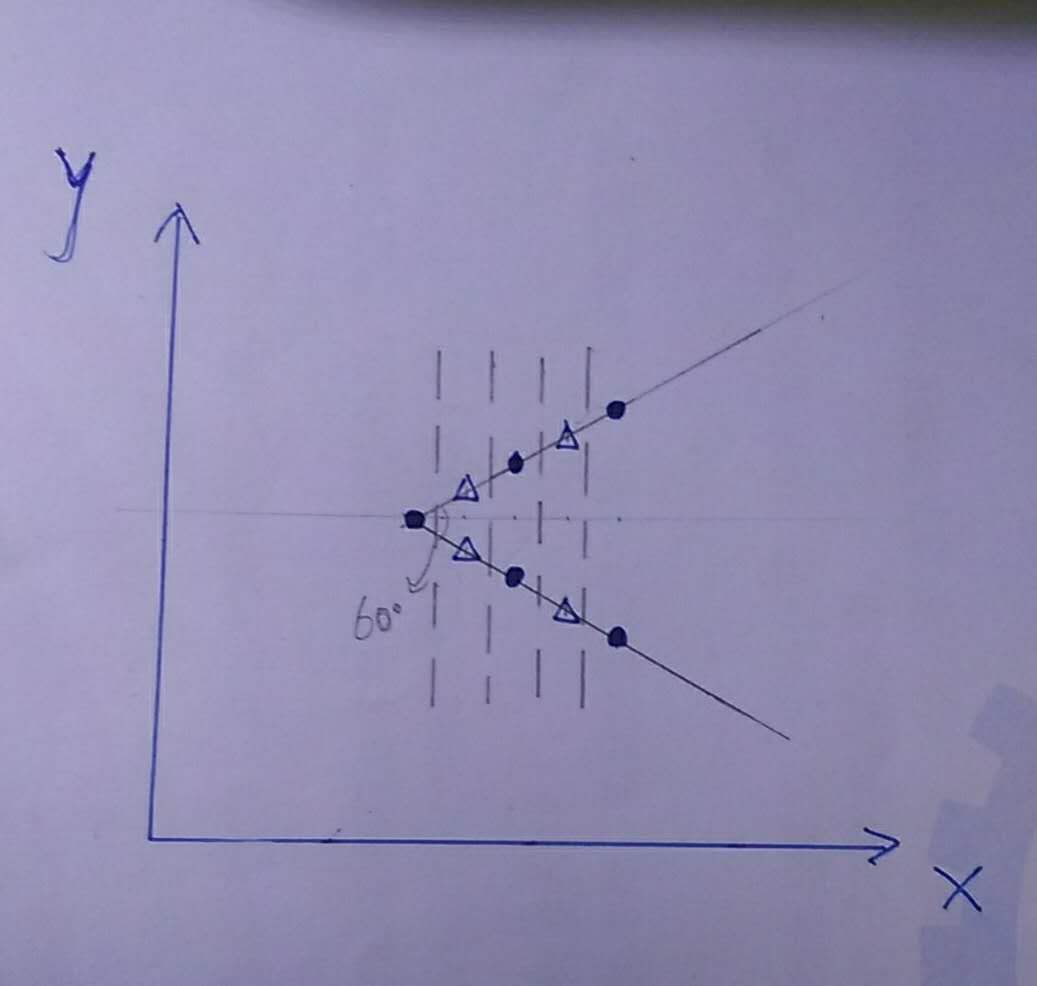 y
60°
x